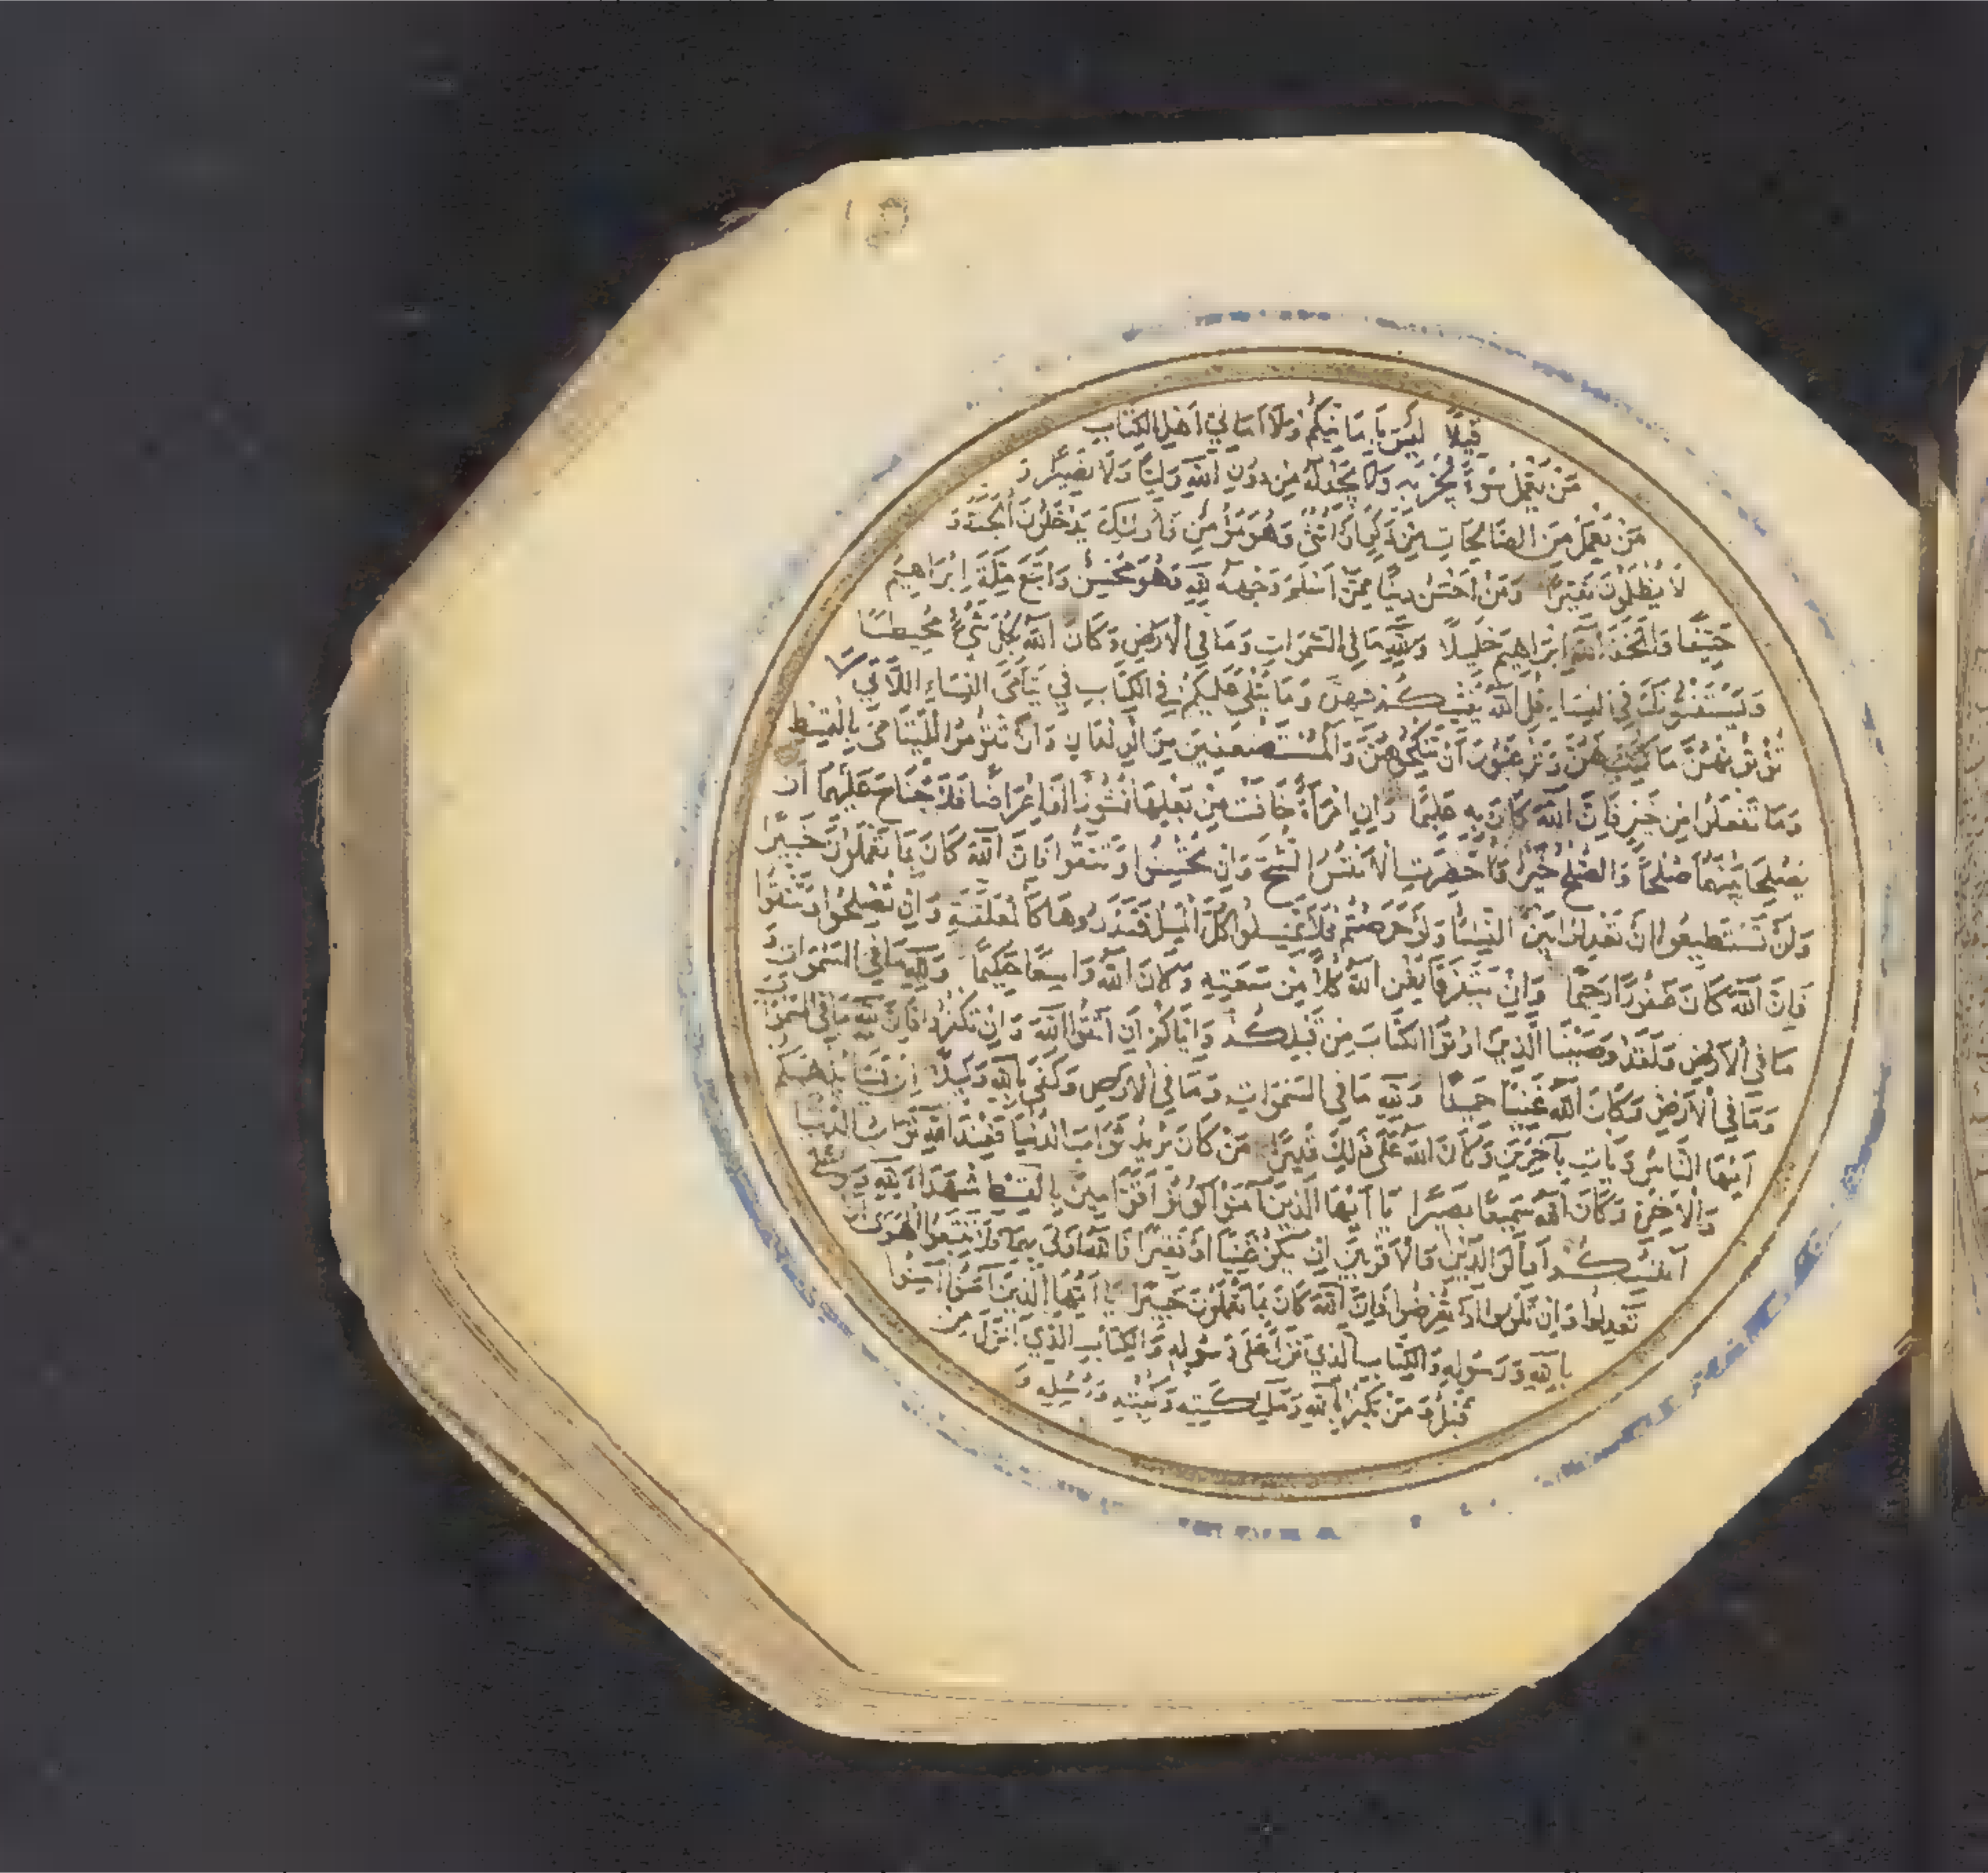 قِيلًا لَيْسَ بِأَمَانِيِّكُمْ وَلَا أَمَانِيِّ أَهْلِ الْكِتَابِ
مَنْ يَعْمَلْ سُوءًا يُجْزَ بِهِ وَلَا يَجِدْ لَهُ مِنْ دُونِ اللَّهِ وَلِيًّا وَلَا نَصِيرًا وَ
مَنْ يَعْمَلْ مِنَ الصَّالِحَاتِ مِنْ ذَكَرٍ أَوْ أُنْثَى وَهُوَ مُؤْمِنٌ فَأُولَئِكَ يَدْخُلُونَ الْجَنَّةَ وَ
لَا يُظْلَمُونَ نَقِيرًا وَمَنْ أَحْسَنُ دِينًا مِمَّنْ أَسْلَمَ وَجْهَهُ لِلَّهِ وَهُوَ مُحْسِنٌ وَاتَّبَعَ مِلَّةَ إِبْرَاهِيمَ
حَنِيفًا وَاتَّخَذَ اللَّهُ إِبْرَاهِيمَ خَلِيلًا وَلِلَّهِ مَا فِي السَّمَوَاتِ وَمَا فِي الْأَرْضِ وَكَانَ اللَّهُ بِكُلِّ شَيْءٍ مُحِيطًا
وَيَسْتَفْتُونَكَ فِي النِّسَاءِ قُلِ اللَّهُ يُفْتِيكُمْ فِيهِنَّ وَمَا يُتْلَى عَلَيْكُمْ فِي الْكِتَابِ فِي يَتَامَى النِّسَاءِ اللَّاتِي لَا
تُؤْتُونَهُنَّ مَا كُتِبَ لَهُنَّ وَتَرْغَبُونَ أَنْ تَنْكِحُوهُنَّ وَالْمُسْتَضْعَفِينَ مِنَ الْوِلْدَانِ وَأَنْ تَقُومُوا لِلْيَتَامَى بِالْقِسْطِ
وَمَا تَفْعَلُوا مِنْ خَيْرٍ فَإِنَّ اللَّهَ كَانَ بِهِ عَلِيمًا وَإِنِ امْرَأَةٌ خَافَتْ مِنْ بَعْلِهَا نُشُوزًا أَوْ إِعْرَاضًا فَلَا جُنَاحَ عَلَيْهِمَا أَنْ
يُصْلِحَا بَيْنَهُمَا صُلْحًا وَالصُّلْحُ خَيْرٌ وَأُحْضِرَتِ الْأَنْفُسُ الشُّحَّ وَإِنْ تُحْسِنُوا وَتَتَّقُوا فَإِنَّ اللَّهَ كَانَ بِمَا تَعْمَلُونَ خَبِيرًا
وَلَنْ تَسْتَطِيعُوا أَنْ تَعْدِلُوا بَيْنَ النِّسَاءِ وَلَوْ حَرَصْتُمْ فَلَا تَمِيلُوا كُلَّ الْمَيْلِ فَتَذَرُوهَا كَالْمُعَلَّقَةِ وَإِنْ تُصْلِحُوا وَتَتَّقُوا
فَإِنَّ اللَّهَ كَانَ غَفُورًا رَحِيمًا وَإِنْ يَتَفَرَّقَا يُغْنِ اللَّهُ كُلًّا مِنْ سَعَتِهِ وَكَانَ اللَّهُ وَاسِعًا حَكِيمًا وَلِلَّهِ مَا فِي السَّمَوَاتِ وَ
مَا فِي الْأَرْضِ وَلَقَدْ وَصَّيْنَا الَّذِينَ أُوتُوا الْكِتَابَ مِنْ قَبْلِكُمْ وَإِيَّاكُمْ أَنِ اتَّقُوا اللَّهَ وَإِنْ تَكْفُرُوا فَإِنَّ لِلَّهِ مَا فِي السَّمَوَاتِ
وَمَا فِي الْأَرْضِ وَكَانَ اللَّهُ غَنِيًّا حَمِيدًا وَلِلَّهِ مَا فِي السَّمَوَاتِ وَمَا فِي الْأَرْضِ وَكَفَى بِاللَّهِ وَكِيلًا إِنْ يَشَأْ يُذْهِبْكُمْ
أَيُّهَا النَّاسُ وَيَأْتِ بِآخَرِينَ وَكَانَ اللَّهُ عَلَى ذَلِكَ قَدِيرًا مَنْ كَانَ يُرِيدُ ثَوَابَ الدُّنْيَا فَعِنْدَ اللَّهِ ثَوَابُ الدُّنْيَا
وَالْآخِرَةِ وَكَانَ اللَّهُ سَمِيعًا بَصِيرًا يَا أَيُّهَا الَّذِينَ آمَنُوا كُونُوا قَوَّامِينَ بِالْقِسْطِ شُهَدَاءَ لِلَّهِ وَلَوْ عَلَى
أَنْفُسِكُمْ أَوِ الْوَالِدَيْنِ وَالْأَقْرَبِينَ إِنْ يَكُنْ غَنِيًّا أَوْ فَقِيرًا فَاللَّهُ أَوْلَى بِهِمَا فَلَا تَتَّبِعُوا الْهَوَى أَنْ
تَعْدِلُوا وَإِنْ تَلْوُوا أَوْ تُعْرِضُوا فَإِنَّ اللَّهَ كَانَ بِمَا تَعْمَلُونَ خَبِيرًا يَا أَيُّهَا الَّذِينَ آمَنُوا آمِنُوا
بِاللَّهِ وَرَسُولِهِ وَالْكِتَابِ الَّذِي نَزَّلَ عَلَى رَسُولِهِ وَالْكِتَابِ الَّذِي أَنْزَلَ مِنْ
قَبْلُ وَمَنْ يَكْفُرْ بِاللَّهِ وَمَلَائِكَتِهِ وَكُتُبِهِ وَرُسُلِهِ وَ